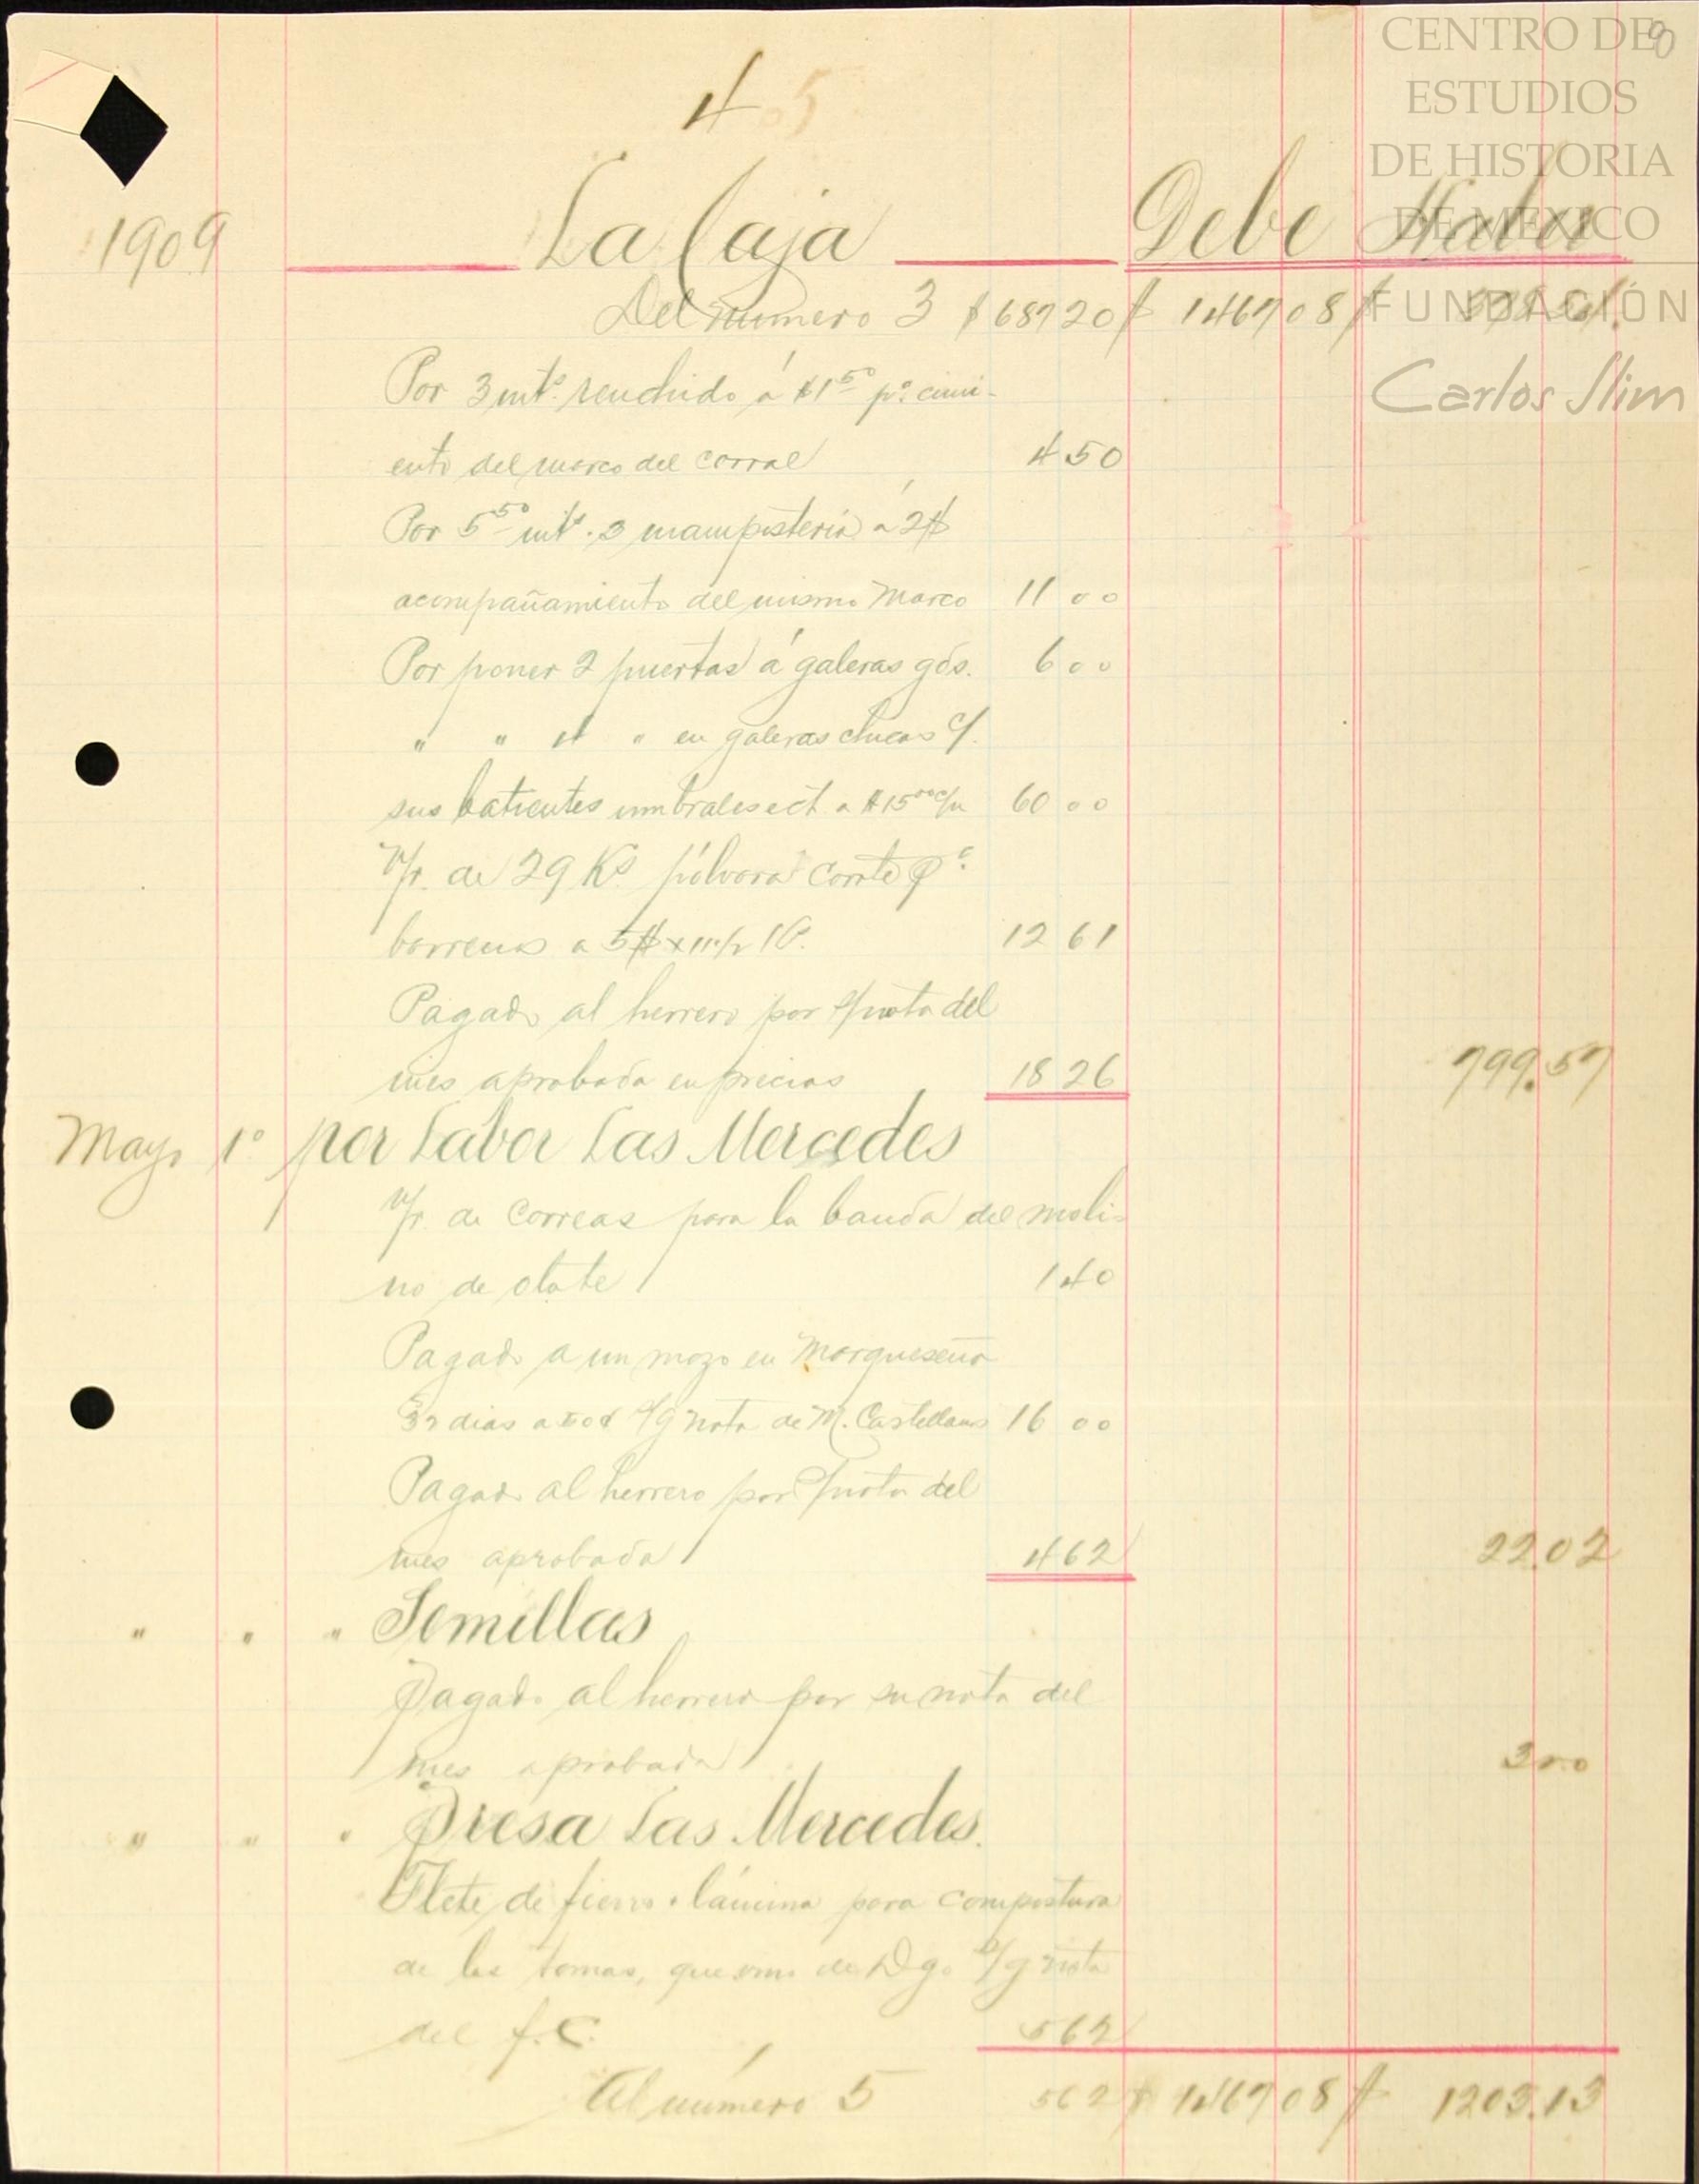 CENTRO DE
ESTUDIOS
DE HISTORIA
DE MEXICO
FUNDACIÓN
Carlos Slim
8
4 5
1909 La Caja Debe Haber
Del número 3 $ 687 20 $ 1467 08 $
Por 3 mts. renchido á $1 50 pa. cimi-
ento del marco del corral 4 50
Por 5 50 mts. 3 mampostería a 2$
acompañamiento del mismo Marco 11 00
Por poner 2 puertas á galeras gds. 6 00
" " 4 " en galeras chicas c/.
sus batientes umbrales ect. a $15 00 c/u 60 00
V/r. de 29 Ks. pólvora corrte Pa.
barrenos a 5$ x 11 1/2 K. 12 61
Pagado al herrero por s/nota del
mes aprobada en precios 18 26 799.57
Mayo 1° por Labor Las Mercedes
V/r. de correas para la banda del moli-
no de olote 1 40
Pagado a un mozo en Marqueseña
32 dias a 50¢ s/g nota de M. Castellanos 16 00
Pagado al herrero por s/nota del
mes aprobada 4 62 22.02
" " " Semillas
Pagado al herrero por su nota del
mes aprobada 3 00
" " " Presa Las Mercedes.
Flete de fierro lámina para compostura
de las tomas, que vino de Dgo. s/g nota
del f.C. 5 62
Al número 5 5 62 $ 1467 08 $ 1203.13